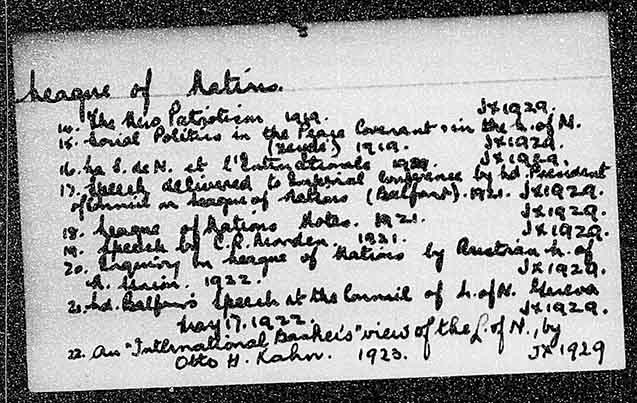 League of Nations.
14. The New Patriotism 1919. JX1929.
15. Social Politics in the Peace Covenant, in the L. of N.
1919. JX1929.
16. La S. de N. et l'Internationale JX1929.
17. Speech delivered to Imperial Conference by Ld. President
of Council on League of Nations (Balfour). 1921. JX1929.
18. League of Nations Notes. 1921. JX1929.
19. Speech by C.R. 1921. JX1929.
20. Inquiry on League of Nations by Austrian L. of
N. Union. 1922. JX1929.
21. Ld. Balfour's Speech at the Council of L. of N. Geneva
May 17. 1922. JX1929.
22. An "International Banker's" view of the L. of N., by
Otto H. Kahn. 1923. JX1929